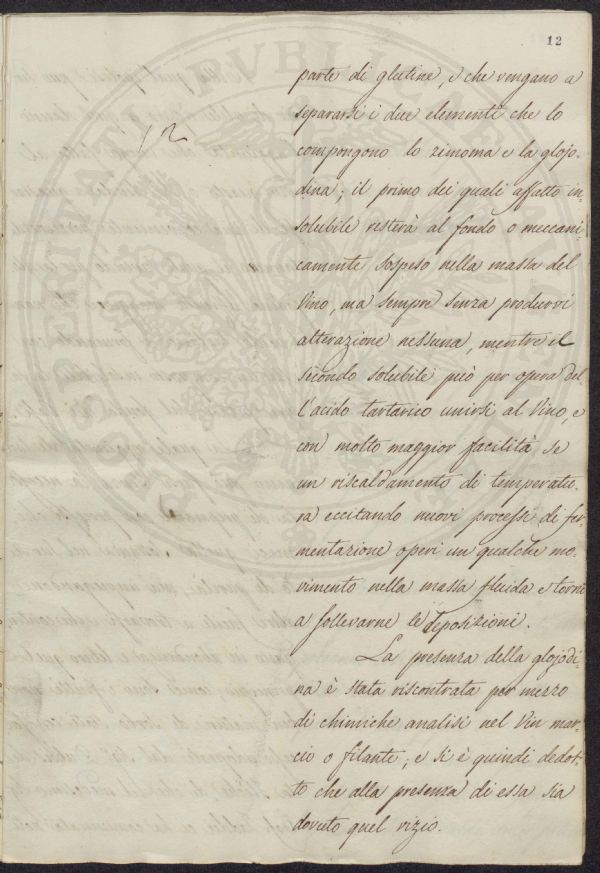 12
12
parte di glutine, e che vengano a
separarsi i due elementi che lo
compongono lo zimoma e la glojo-
dina; il primo dei quali affatto in-
solubile resterà al fondo o meccani-
camente sospeso nella massa del
Vino, ma sempre senza produrvi
alterazione nessuna, mentre il
secondo solubile può per opera del
l'acido tartarico unirsi al Vino, e
con molto maggior facilità se
un riscaldamento di temperatu-
ra eccitando nuovi processi di fer-
mentazione operi un qualche mo-
vimento nella massa fluida e torni
a sollevarne le deposizioni.
La presenza della glojodi-
na è stata riscontrata per mezzo
di chimiche analisi nel Vin mar-
cio o filante; e si è quindi dedot-
to che alla presenza di essa sia
dovuto quel vizio.